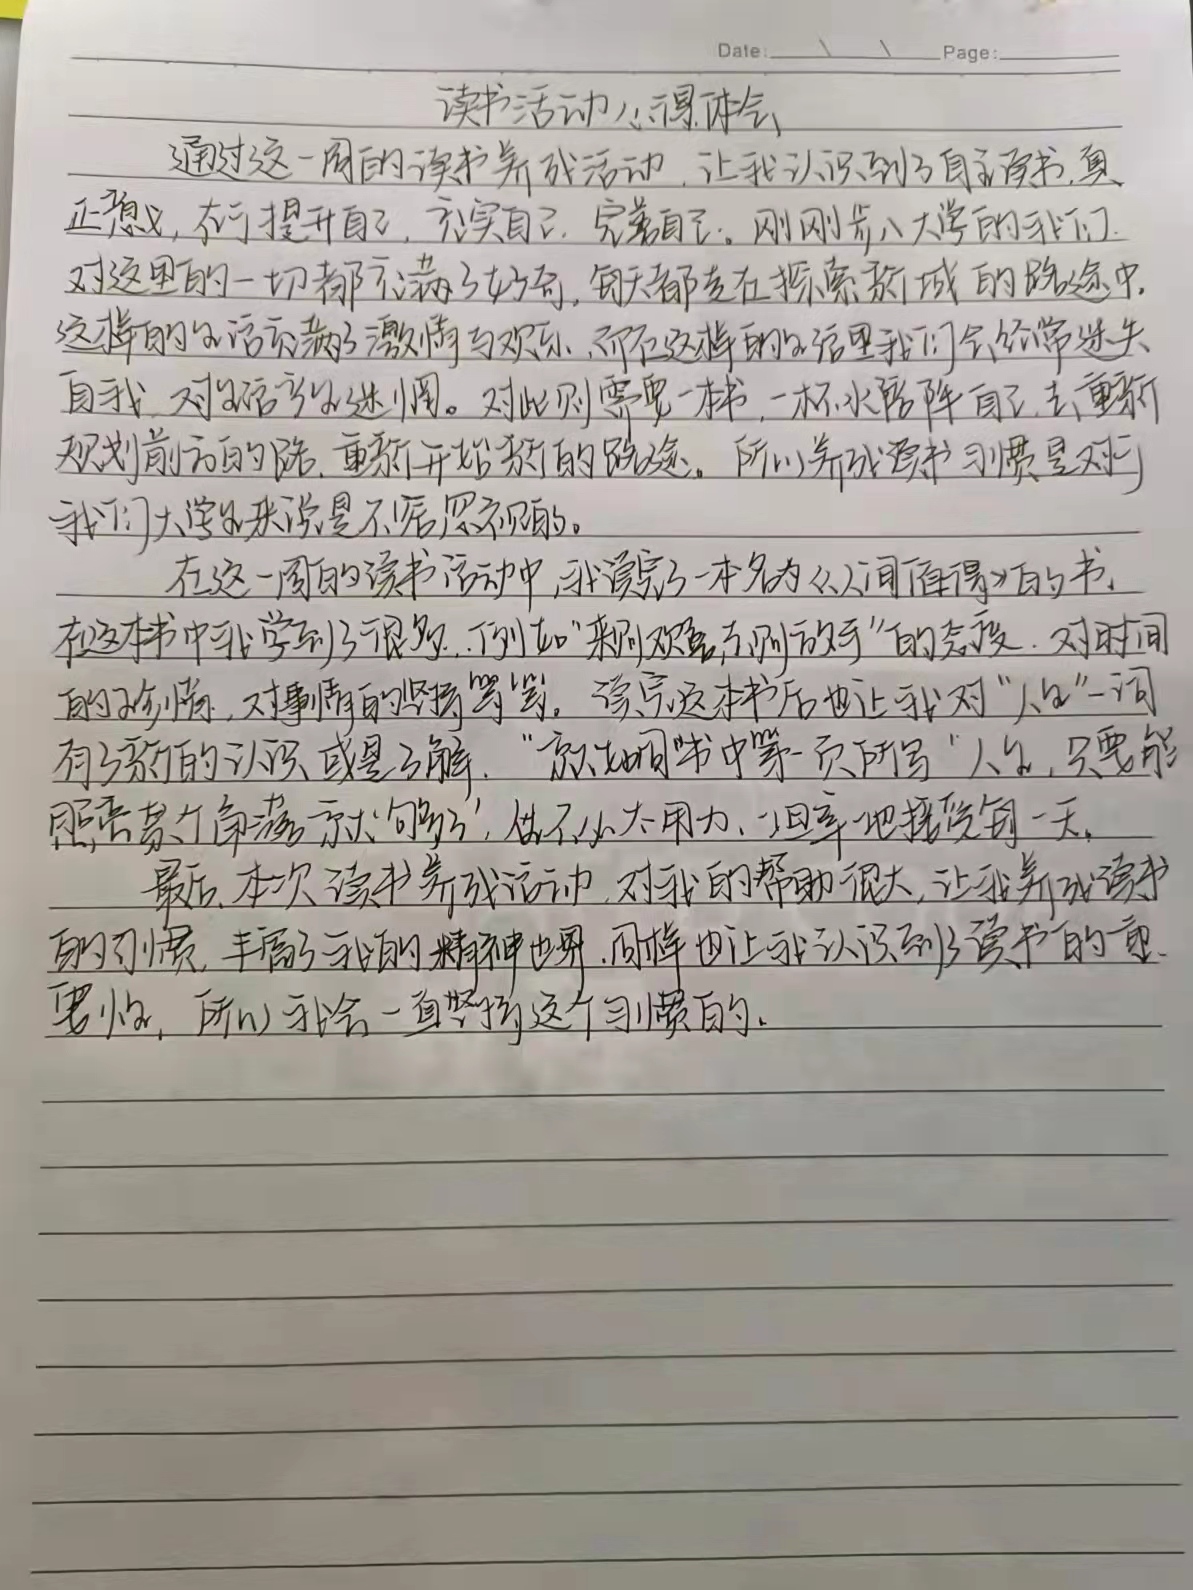 Date: \ \ Page:
读书活动心得体会
通过这一周的读书养成活动,让我认识到了自主读书,真
正意义,在于提升自己,充实自己,完善自己。刚刚步入大学的我们
对这里的一切都充满了好奇,每天都走在探索新城的路途中,
这样的生活充满了激情与欢乐,而在这样的生活里我们会经常迷失
自我,对生活产生迷惘。对此则需要一本书,一杯水陪伴自己,去重新
规划前方的路,重新开始新的路途。所以养成读书习惯是对于
我们大学生来说是不能忽视的。
在这一周的读书活动中,我读完了一本名为《人间值得》的书,
在这本书中我学到了很多,例如"来则欢喜,去则放手"的态度,对时间
的珍惜,对事情的坚持等等。读完这本书后也让我对"人生"一词
有了新的认识或是了解,"就如同"书中第一页所写"人生,只要能
照亮某个角落就够了",做不必太用力,坦率地接受每一天。
最后,本次读书养成活动,对我的帮助很大,让我养成读书
的习惯,丰富了我的精神世界,同样也让我认识到了读书的重
要性,所以我会一直坚持这个习惯的。